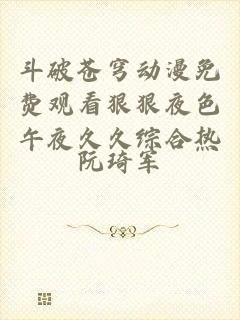 斗破苍穹动漫免
费观看狠狠夜色
午夜久久综合热
阮琦军